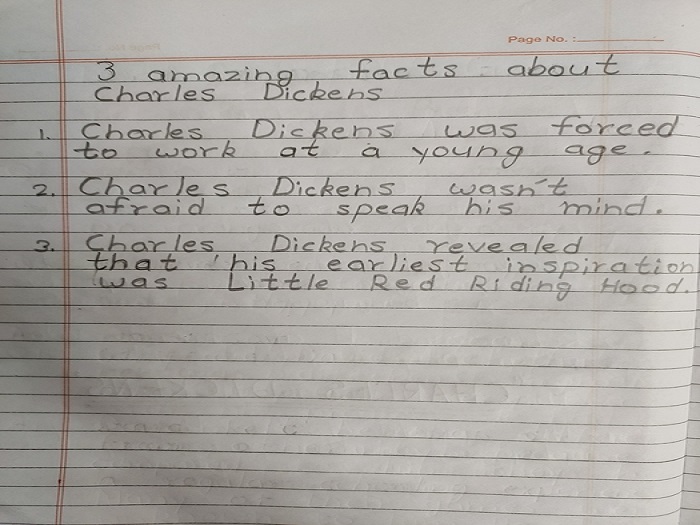 Page No. :
3 amazing facts about
Charles Dickens
1. Charles Dickens was forced
to work at a young age.
2. Charles Dickens wasn't
afraid to speak his mind.
3. Charles Dickens revealed
that his earliest inspiration
was Little Red Riding Hood.